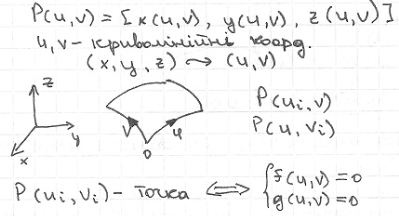 P(u,v) = [x(u,v), y(u,v), z(u,v)]
u,v - криволінійні коорд.
(x, y, z) ⤳ (u,v)
z
y
x
v
u
0
P(ui, v)
P(u, vi)
P(ui, vi) - точка ⟺ { f(u,v)=0
g(u,v)=0